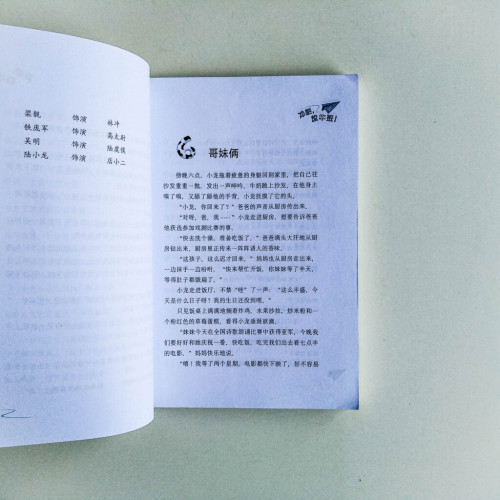 梁靓 饰演 林冲
铁庞军 饰演 高太尉
吴明 饰演 陆虞候
陆小龙 饰演 店小二
加吧，
哥妹俩
傍晚六点，小龙拖着疲惫的身躯回到家里，把自己往
沙发重重一抛，发出一声呻吟，牛奶跳上沙发，在他身上
嗅了嗅，又舔了舔他的手背，小龙抚摸了它的头。
“小龙，你回来了？”爸爸的声音从厨房传出来。
“对呀，爸，我……”小龙走进厨房，想要告诉爸爸
他获选参加戏剧比赛的事。
“快去洗个澡，准备吃饭了。”爸爸满头大汗地从厨
房钻出来，厨房里正传来一阵阵诱人的香味。
“这孩子，这么迟才回来，”妈妈也从厨房走出来，
一边抹手一边吩咐，“快来帮忙开饭，你妹妹等了半天，
等得肚子都饿扁了。”
小龙走进饭厅，不禁“哇”了一声：“这么丰盛，今
天是什么日子呀？我的生日还没到哩。”
只见饭桌上满满地摆着炸鸡、水果沙拉、炒米粉和一
个粉红色的草莓蛋糕，看得小龙垂涎欲滴。
“妹妹今天在全国诗歌朗诵比赛中获得亚军，今晚我
们要好好和她庆祝一番，快吃饭，吃完我们出去看七点半
的电影，”妈妈快乐地说。
“唷！我等了两个星期，电影都快下映了，好不容易